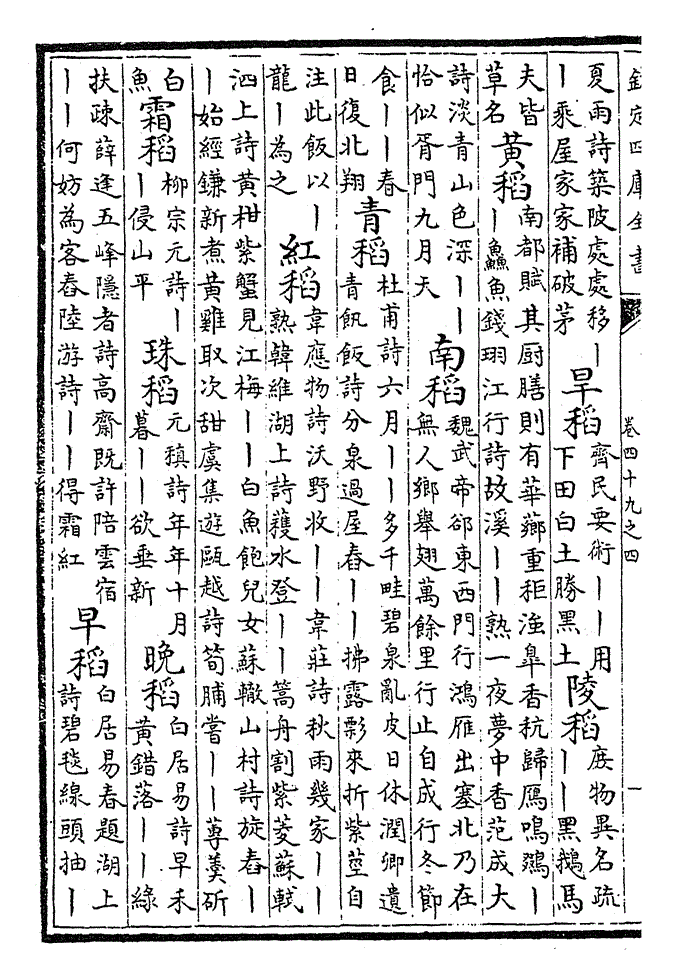 欽定四庫全書 卷四十九之四 一
夏雨詩築陂處處移丨
丨乘屋家家補破茅
旱稻
齊民要術丨丨用
下田白土勝黑土
陵稻
庶物異名疏
丨丨黑鵝馬
夫皆
草名
黃稻
南都賦其厨膳則有華薌重秬滍臯香秔歸鴈鳴鵽丨
丨鱻魚錢珝江行詩故溪丨丨熟一夜夢中香范成大
詩淡青山色深丨丨
恰似胥門九月天
南稻
魏武帝郤東西門行鴻雁出塞北乃在
無人鄉舉翅萬餘里行止自成行冬節
食丨丨春
日復北翔
青稻
杜甫詩六月丨丨多千畦碧泉亂皮日休潤卿遺
青飢飯詩分泉過屋舂丨丨拂露影來折紫莖自
注此飯以丨
龍丨為之
紅稻
韋應物詩沃野收丨丨韋莊詩秋雨幾家丨丨
熟韓維湖上詩穫水登丨丨蒿舟割紫菱蘇軾
泗上詩黃柑紫蟹見江梅丨丨白魚飽兒女蘇轍山村詩旋舂丨
丨始經鎌新煮黃雞取次甜虞集遊甌越詩筍脯嘗丨丨蓴羹斫
白
魚
霜稻
柳宗元詩丨
丨侵山平
珠稻
元稹詩年年十月
暮丨丨欲垂新
晚稻
白居易詩早禾
黃錯落丨丨綠
扶疎薛逢五峰隱者詩高齋既許陪雲宿
丨丨何妨為客舂陸游詩丨丨得霜紅
早稻
白居易春題湖上
詩碧毯線頭抽丨